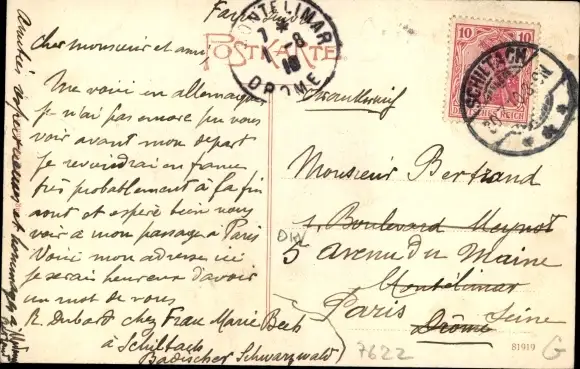 Faire suivre
Cher monsieur et ami,
POSTKARTE
Me voici en allemagne
je n'ai pas encore pu vous
voir avant mon départ
je reviendrai en france
très probablement à la fin
aout et espère bien vous
voir à mon passage à Paris
Voici mon adresse ici
je serais heureux d'avoir
un mot de vous
R. Dubard chez Frau Marie Beck
à Schiltach
Badischer Schwarzwald
Amitiés respectueuses et hommages à Madame
MONTELIMAR
DROME
10 10
DEUTSCHES REICH
SCHILTACH
Frankreich
Monsieur Bertrand
1, Boulevard Meynot
5 avenue du Maine
Montélimar
Paris Seine
Drôme
7622
81919
G